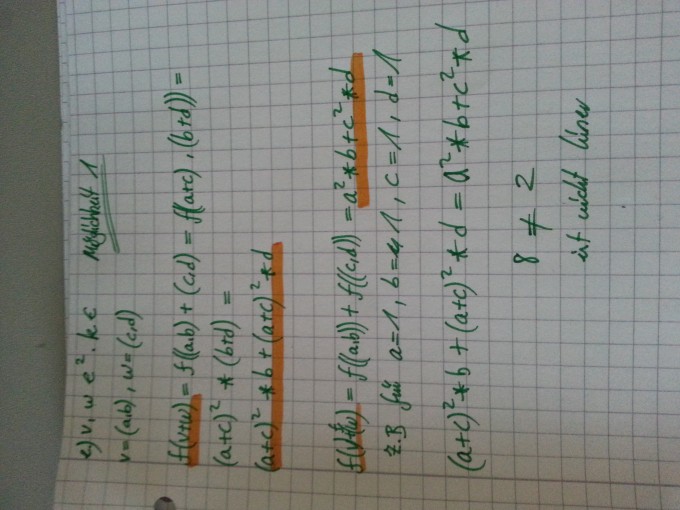 e) v, w ∈ ². k ∈ Möglichkeit 1
v=(a,b), w=(c,d)
f(v+w) = f((a,b) + (c,d) = f((a+c), (b+d)) =
(a+c)² * (b+d) =
(a+c)² * b + (a+c)² * d
= f((a,b)) + f((c,d)) = a² * b + c² * d
z.B für a=1, b= 1, c=1, d=1
(a+c)² * b + (a+c)² * d = a² * b + c² * d
8 ≠ 2
ist nicht linear